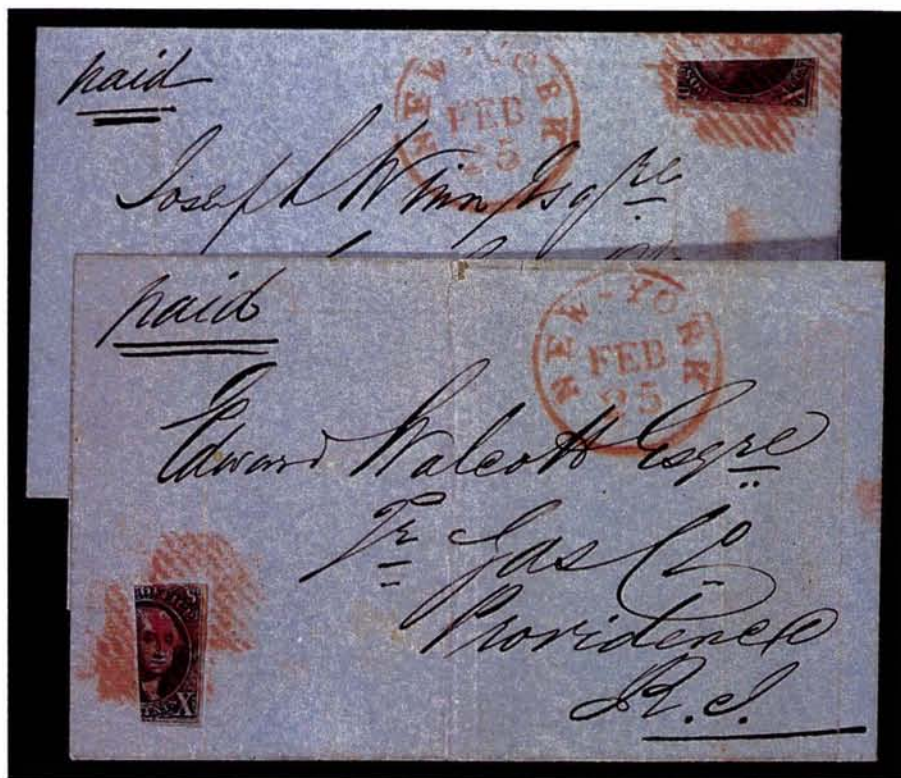 paid
NEW-YORK
FEB
25
Joseph Winn Esqre
paid
NEW-YORK
FEB
25
Edward Walcott Esqre
Tr Gas Co
Providence
R.I.
X